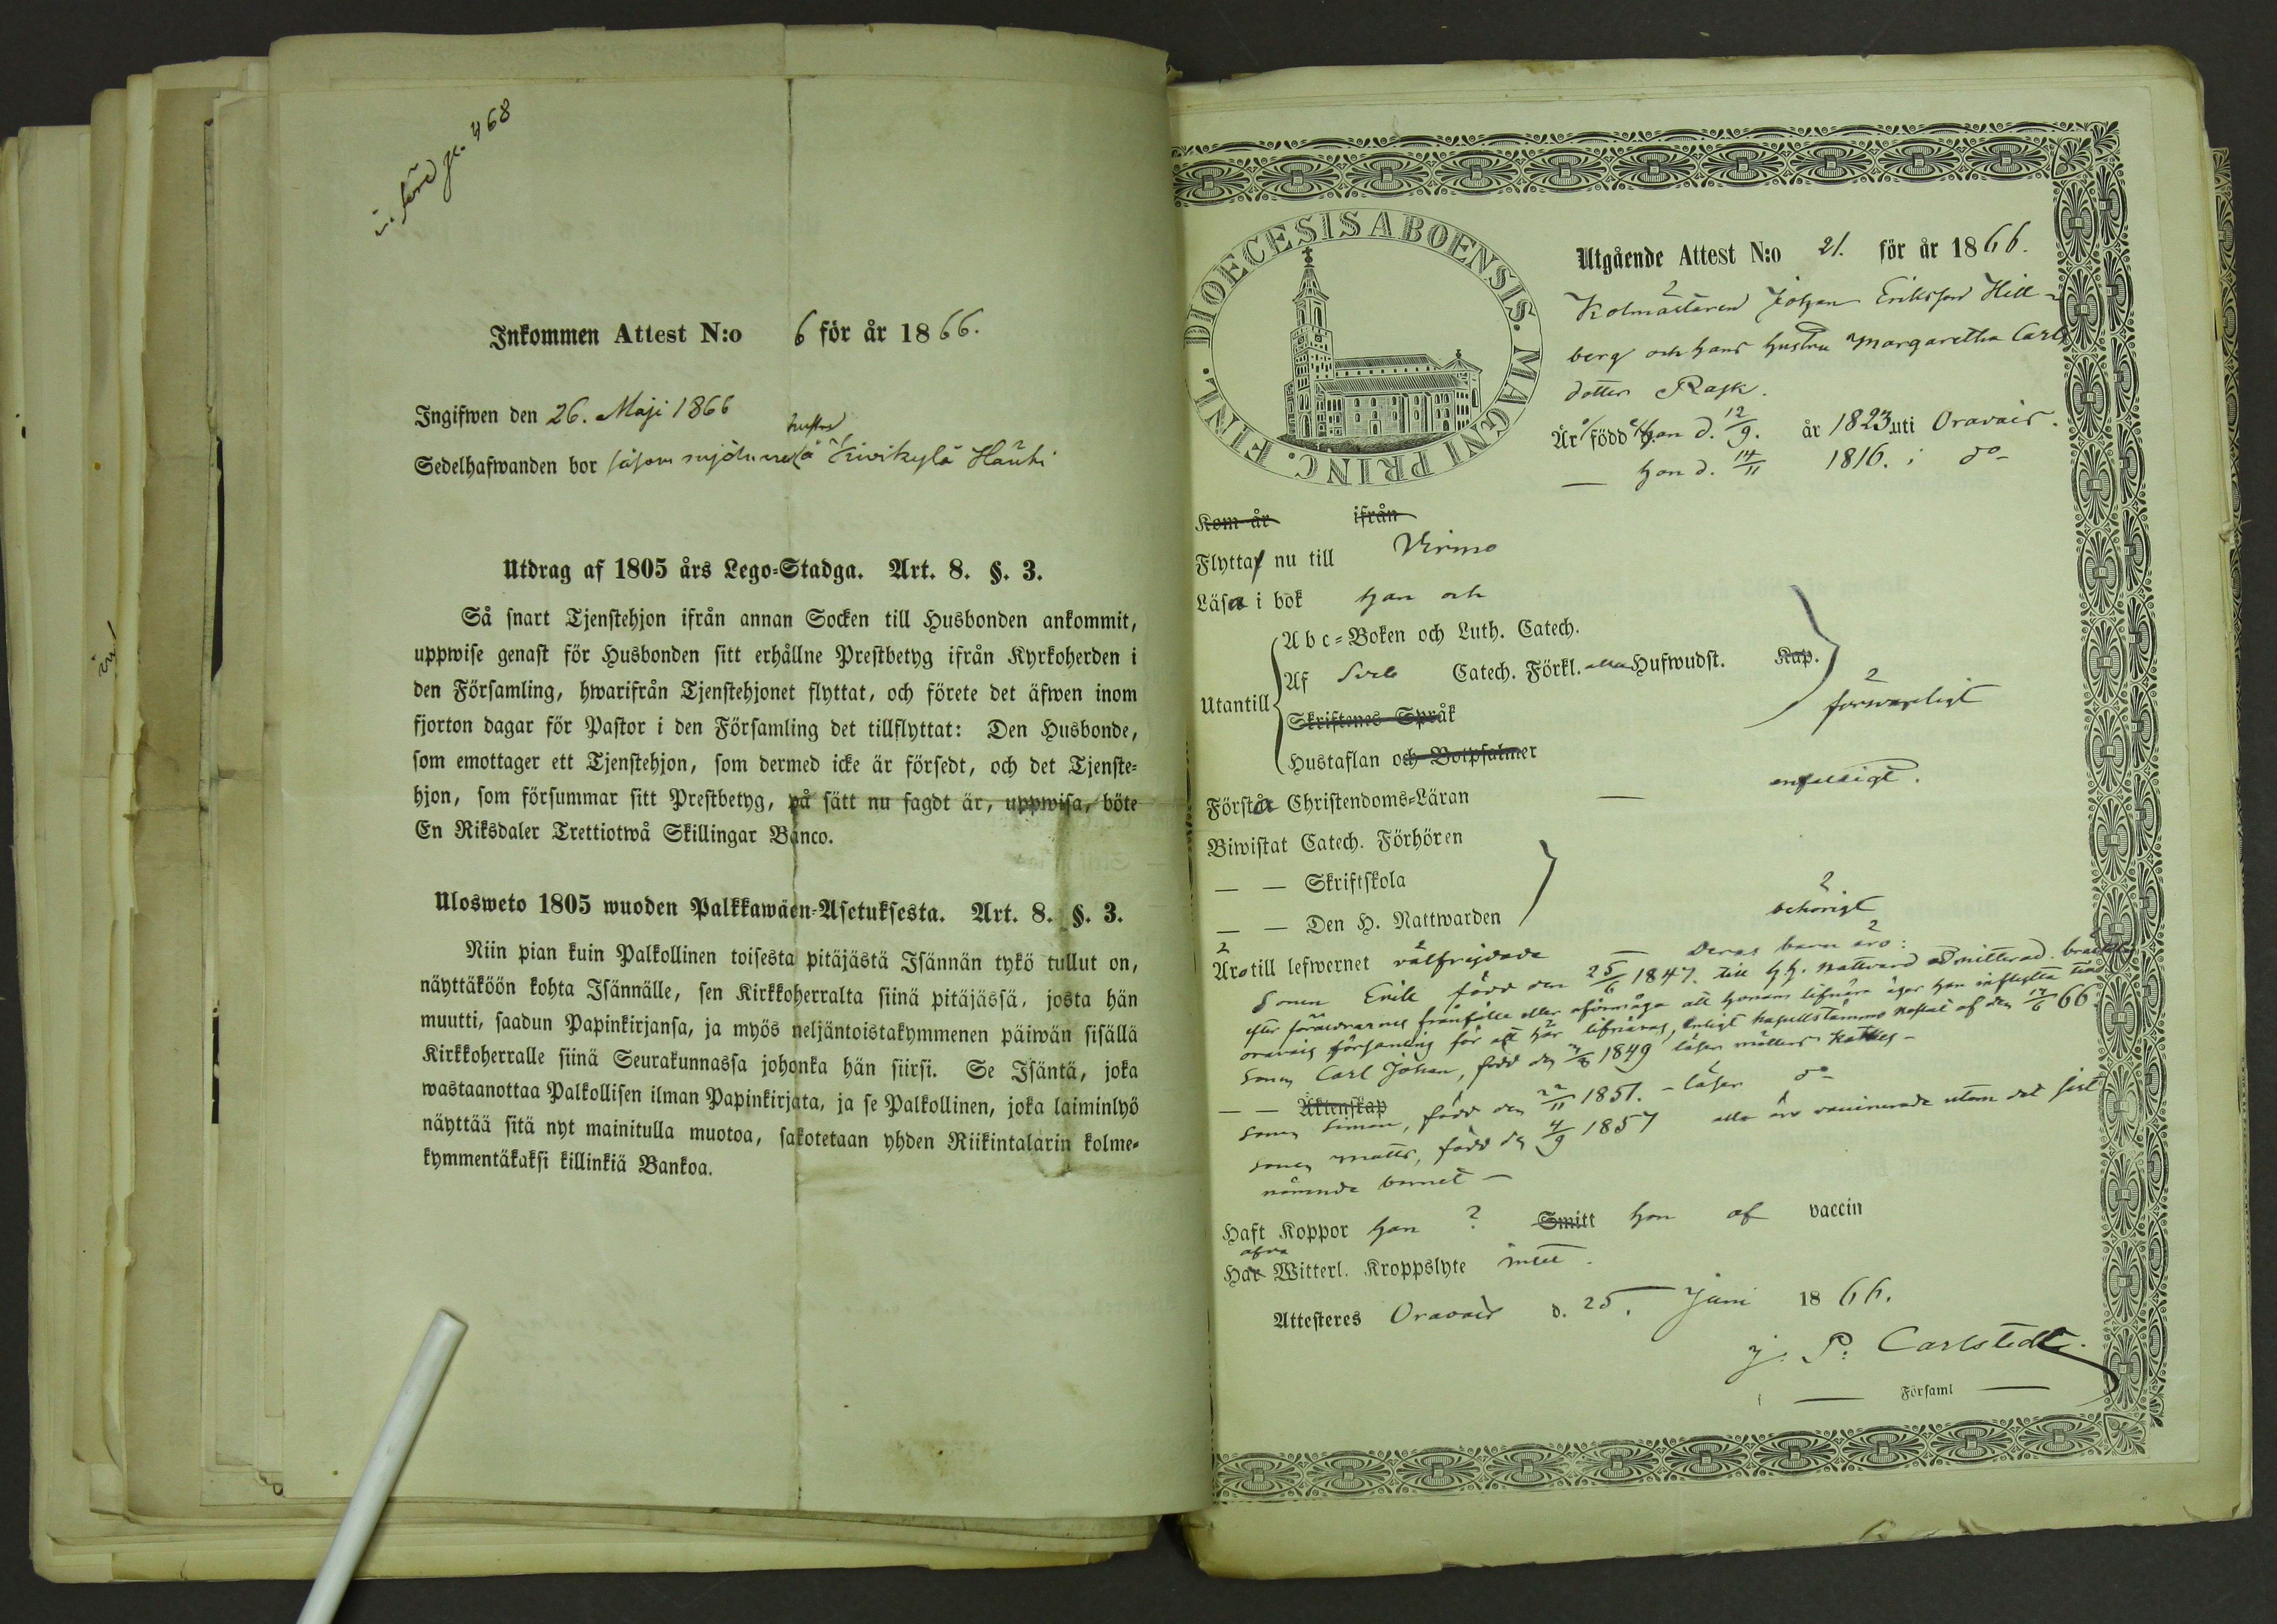 införd p. 468
Inkommen Attest N:o 6 för år 1866.
Ingifwen den 26. Maji 1866
hustru
Sedelhafwanden bor såsom mjöln å Kivikylä Hauhi
Utdrag af 1805 års Lego-Stadga. Art. 8. §. 3.
Så snart Tjenstehjon ifrån annan Socken till Husbonden ankommit,
uppwise genast för Husbonden sitt erhållne Prestbetyg ifrån Kyrkoherden i
den Församling, hwarifrån Tjenstehjonet flyttat, och förete det äfwen inom
fjorton dagar för Pastor i den Församling det tillflyttat: Den Husbonde,
som emottager ett Tjenstehjon, som dermed icke är försedt, och det Tjenste-
hjon, som försummar sitt Prestbetyg, på sätt nu sagdt är, uppwisa, böte
En Riksdaler Trettiotwå Skillingar Banco.
Ulosweto 1805 wuoden Palkkawäen-Asetuksesta. Art. 8. §. 3.
Niin pian kuin Palkollinen toisesta pitäjästä Isännän tykö tullut on,
näyttäköön kohta Isännälle, sen Kirkkoherralta siinä pitäjässä, josta hän
muutti, saadun Papinkirjansa, ja myös neljäntoistakymmenen päiwän sisällä
Kirkkoherralle siinä Seurakunnassa johonka hän siirsi. Se Isäntä, joka
wastaanottaa Palkollisen ilman Papinkirjata, ja se Palkollinen, joka laiminlyö
näyttää sitä nyt mainitulla muotoa, sakotetaan yhden Riikintalarin kolme-
kymmentäkaksi killinkiä Bankoa.
FINL. DIOECESIS ABOENSIS. MAGNI PRINC.
Utgående Attest N:o 21. för år 1866.
Kolmästaren Johan Eriksson Hill-
berg och hans hustru Margaretha Carls
dotter Rask.
Är född han d. 12/9. år 1823 uti Oravais.
— hon d. 14/11 1816. i do
Kom år ifrån
Flytta nu till Virmo
Läsa i bok han och
Abc-Boken och Luth. Catech.
Af Sveb Catech. Förkl. Hufwudst. Kap.
Utantill
försvarligt
Skriftenes Språk
Hustaflan och Botpsalmer
Förstå Christendoms-Läran — enfaldigt.
Biwistat Catech. Förhören
— — Skriftskola
behörigt
— — Den H. Nattwarden
Äro till lefwernet välfrejdade — Deras barn äro:
Sonen Erik född den 25/6 1847. till H. H. Nattvard admitterad.
efter föräldrarnes frånfälle eller oförmåga att honom lifnära äger han inflytta till
oravais församling för att här lifnäras, enligt af den 17/6 66.
Sonen Carl Johan, född den 1849 läser
— — Äktenskap
Sonen Simon, född den 1851. - läser do
Sonen Matts, född den 4/9 1857 alla äro vaccinerade utom det sist
nämnde barnet —
Haft Koppor han ? Smitt hon af vaccin
Har Witterl. Kroppslyte intet.
Attesteres Oravais d. 25. Juni 1866.
J. P. Carlstedt.
Församl